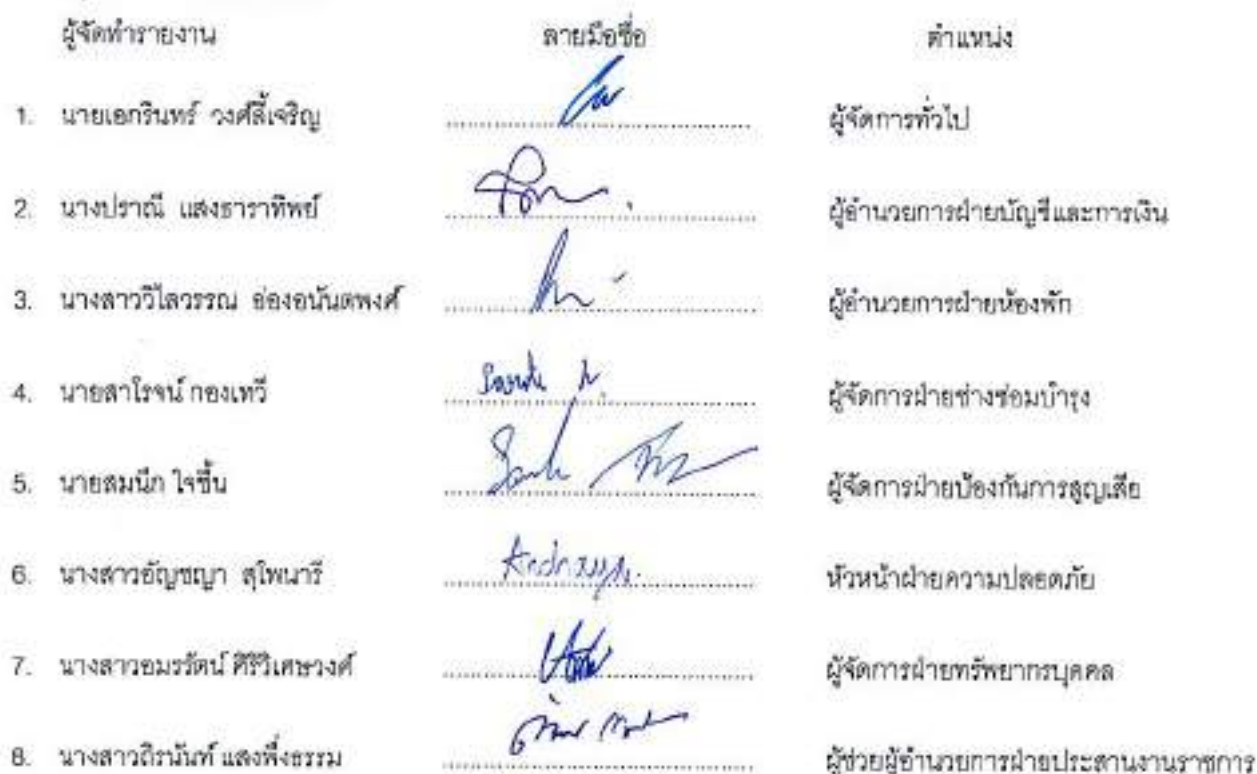 ผู้จัดทำรายงาน ลายมือชื่อ ตำแหน่ง
1. นายเอกรินทร์ วงศ์ลี้เจริญ ผู้จัดการทั่วไป
2. นางปราณี แสงธาราทิพย์ ผู้อำนวยการฝ่ายบัญชีและการเงิน
3. นางสาววิไลวรรณ อ่องอนันตพงศ์ ผู้อำนวยการฝ่ายห้องพัก
4. นายสาโรจน์ กองเทวี ผู้จัดการฝ่ายช่างซ่อมบำรุง
5. นายสมนึก ใจชื้น ผู้จัดการฝ่ายป้องกันการสูญเสีย
6. นางสาวอัญชญา สุโพนารี หัวหน้าฝ่ายความปลอดภัย
7. นางสาวอมรรัตน์ ศิริวิเศษวงศ์ ผู้จัดการฝ่ายทรัพยากรบุคคล
8. นางสาวถิรนันท์ แสงพึ่งธรรม ผู้ช่วยผู้อำนวยการฝ่ายประสานงานราชการ